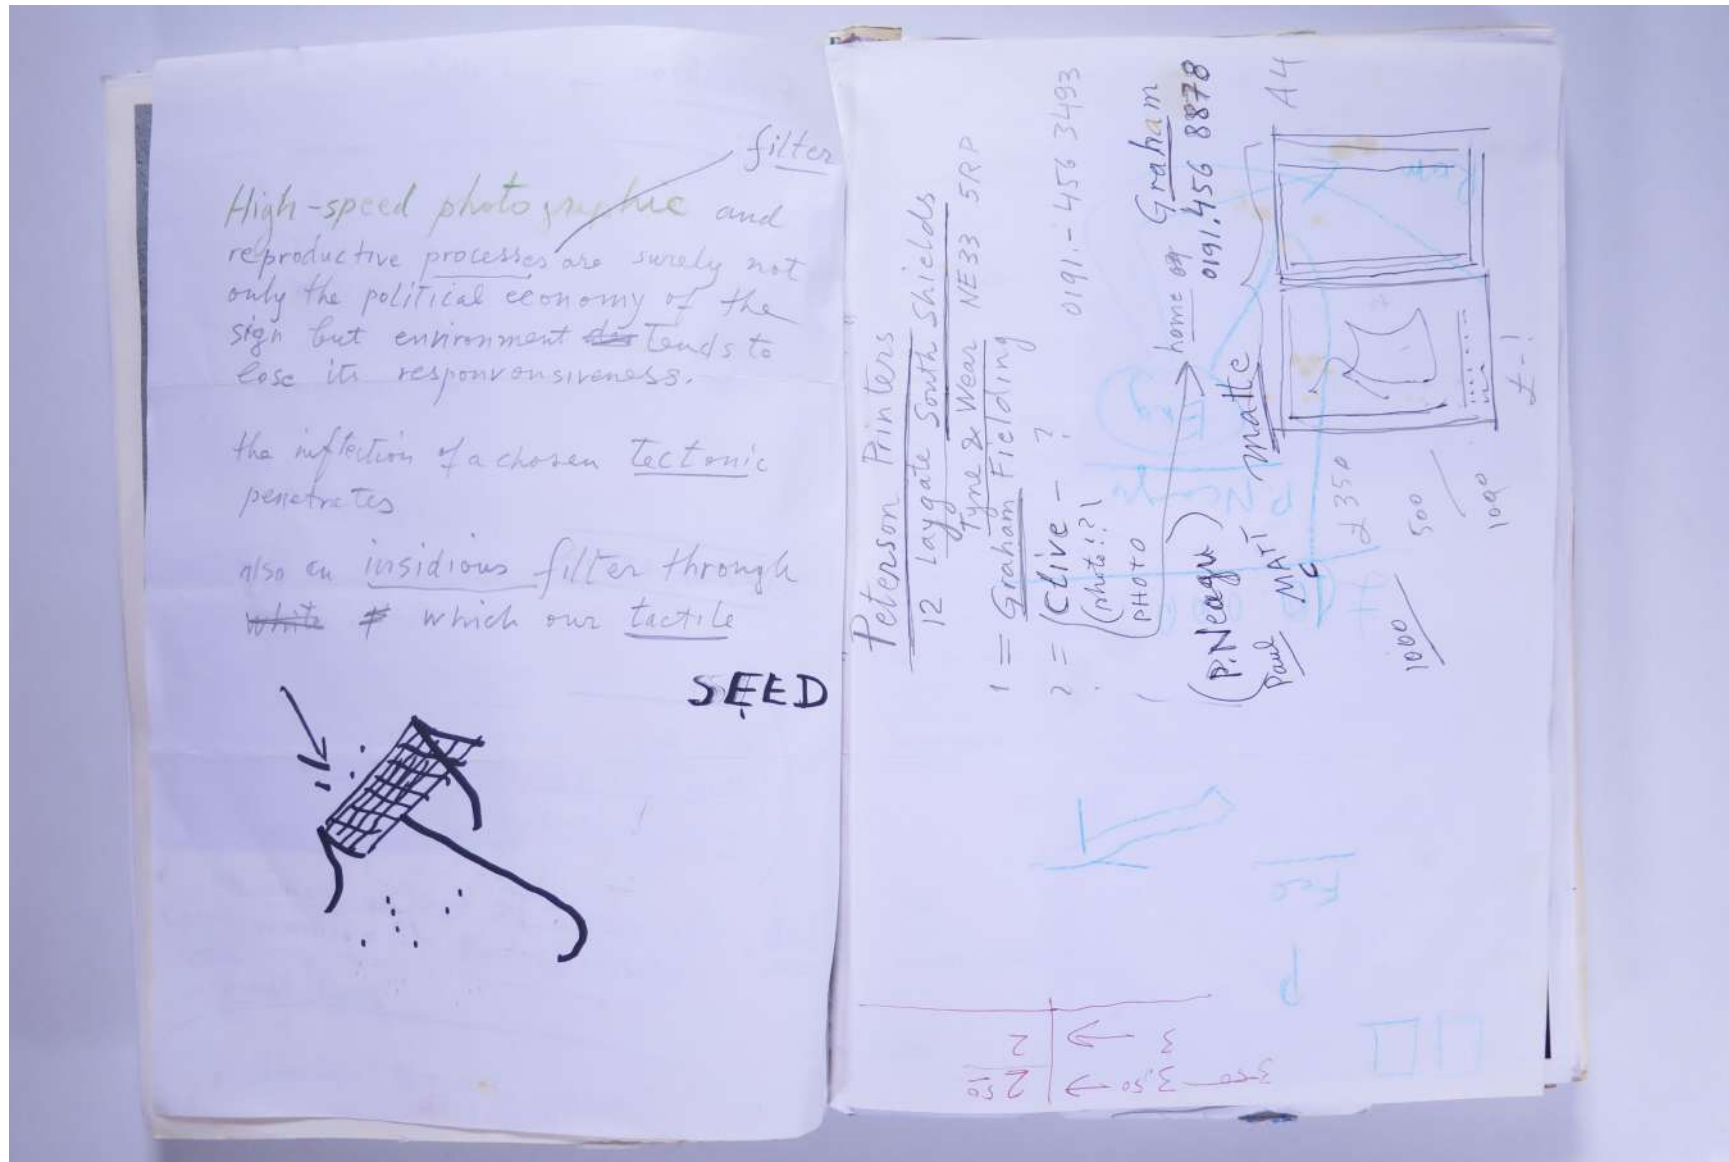 filter
High-speed photographic and
reproductive processes are surely not
only the political economy of the
sign but environment tends to
lose its responvonsiveness.
the inflection of a chosen tectonic
penetrates
also an insidious filter through
white which our tactile
SEED
Peterson Printers
12 Laygate South Shields
Tyne & Wear NE33 5RP
1 = Graham Fielding
2 = Clive - ? 0191.- 456 3493
(photo??)
PHOTO
home Graham
0191.456 8878
(P. Neagu)
Paul
matte
A4
£350
500
1000
1000
£-!
2
3
2.50
3.50
3.50